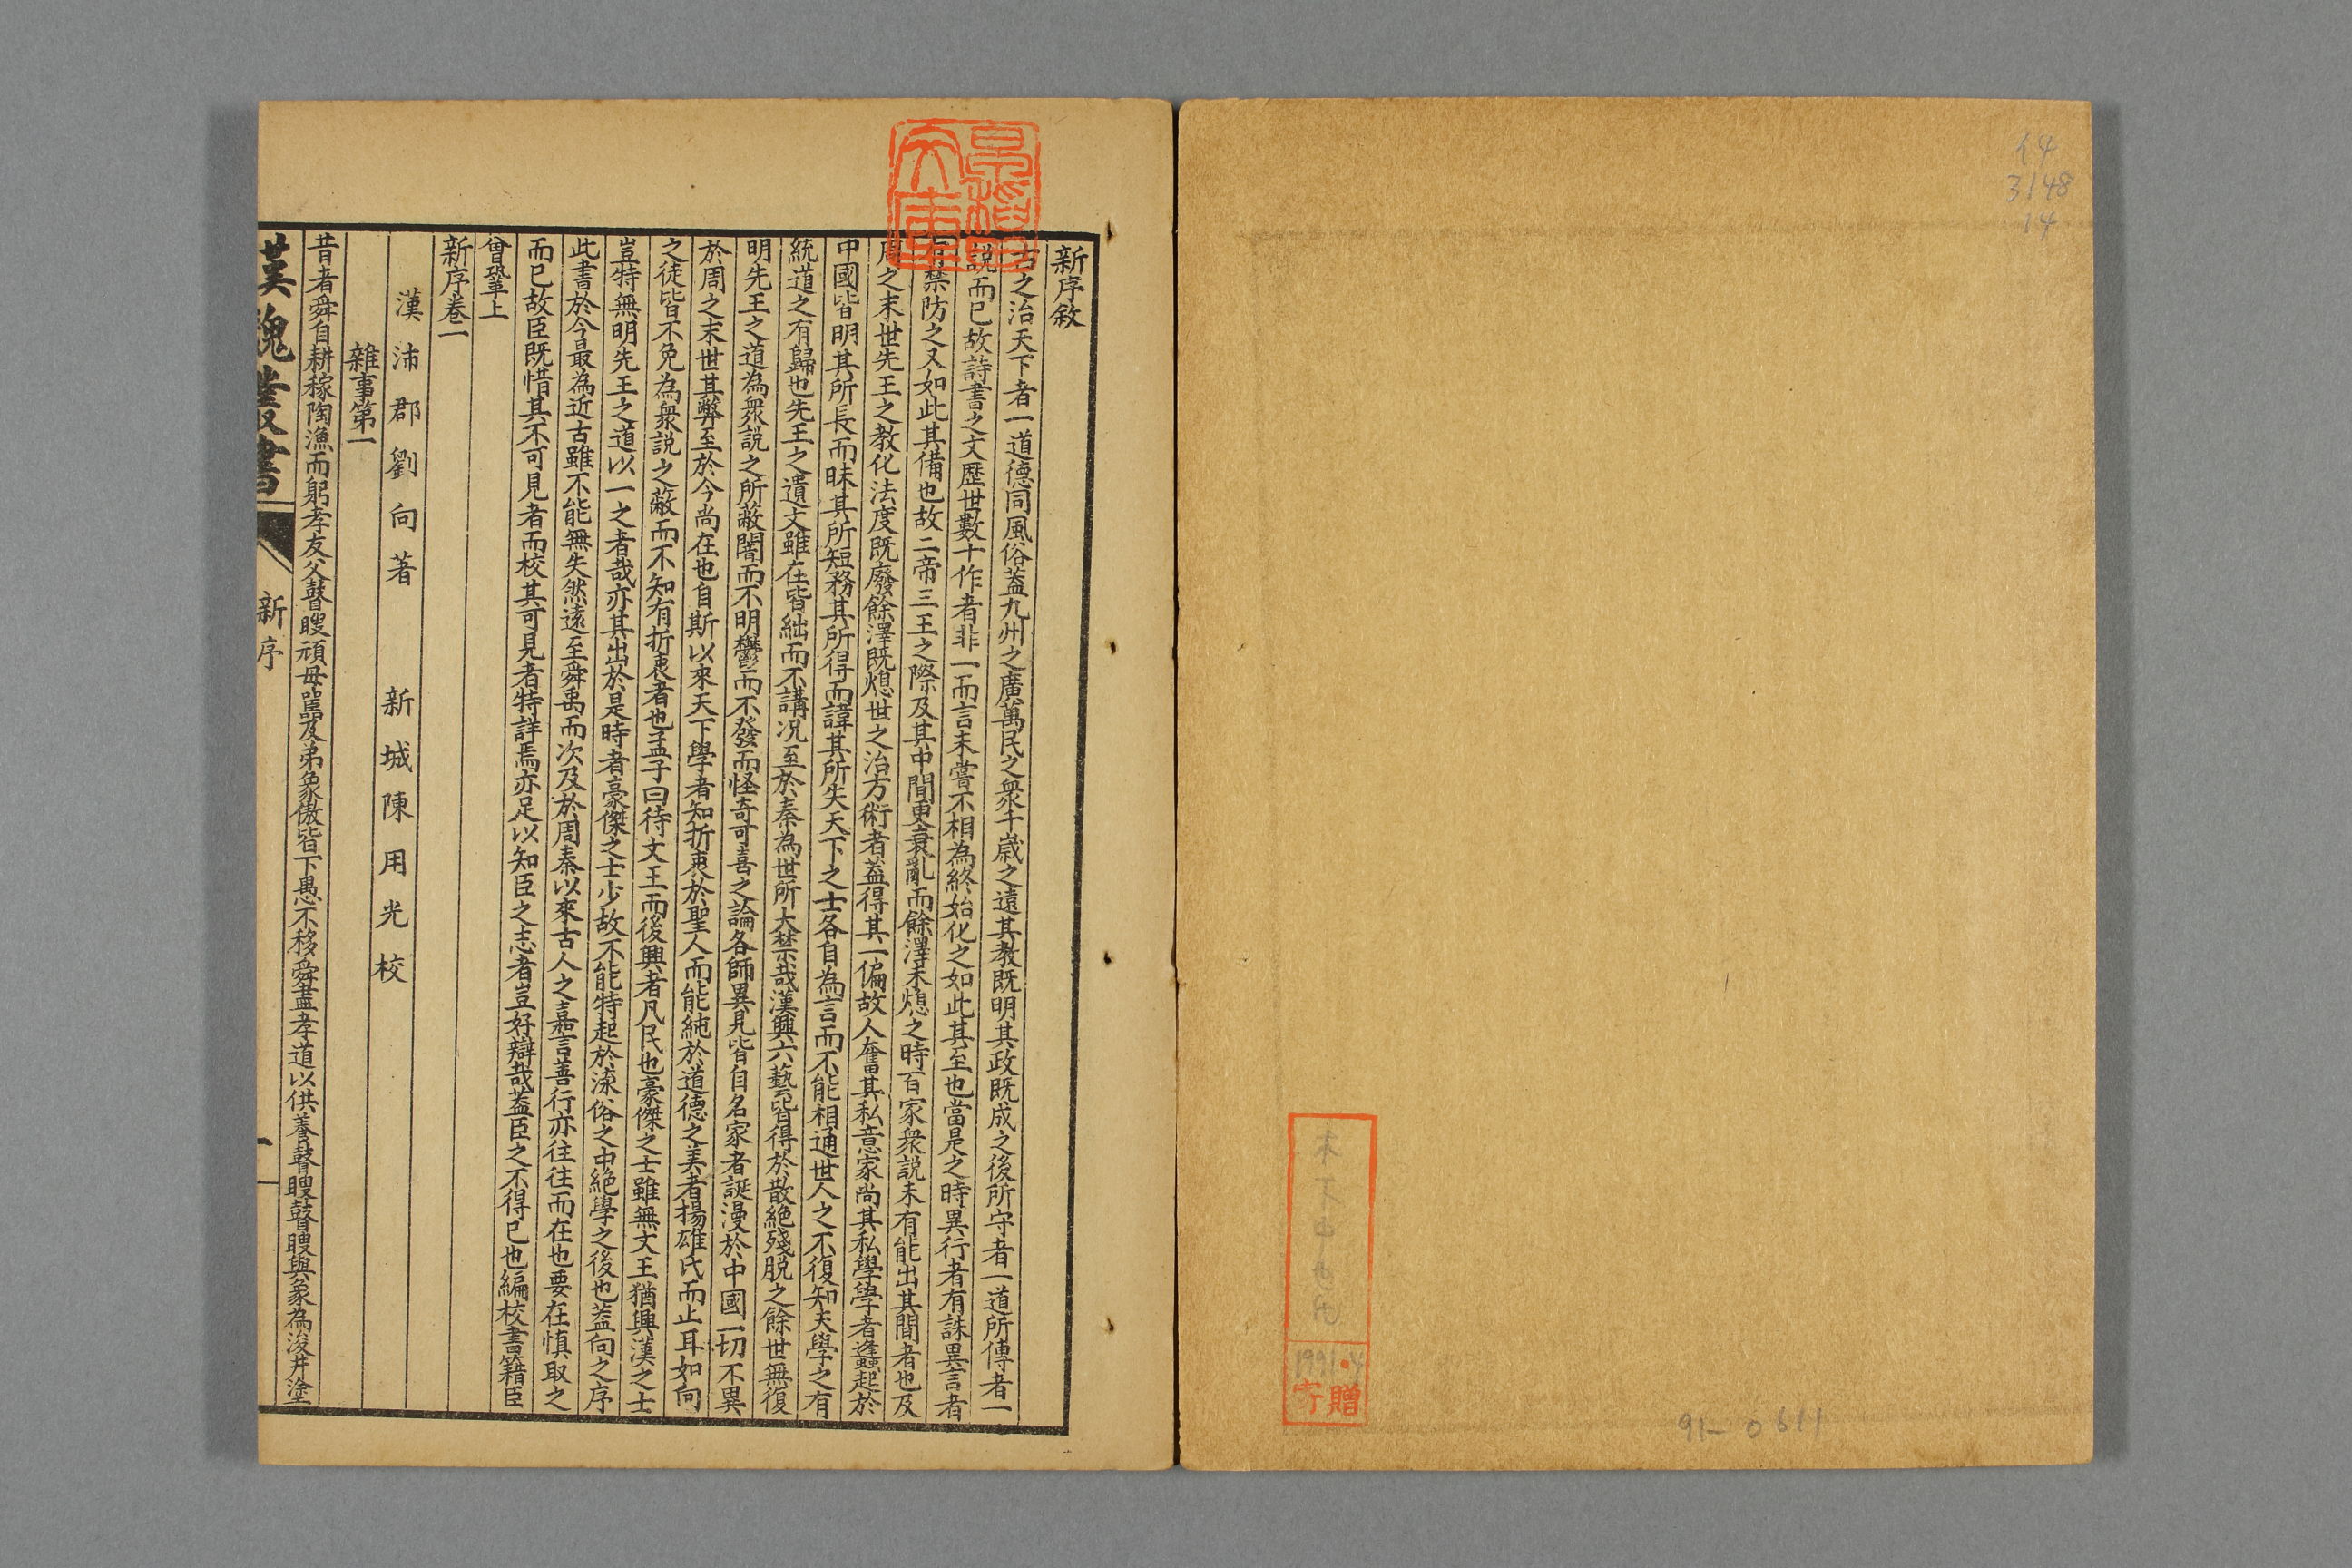 イ4
3148
14
贈
寄
91-0611
新序敘
古之治天下者一道德同風俗蓋九州之廣萬民之衆千歲之遠其教既明其政既成之後所守者一道所傳者一
説而已故詩書之文歷世數十作者非一而言未嘗不相為終始化之如此其至也當是之時異行者有誅異言者
有禁防之又如此其備也故二帝三王之際及其中間更衰亂而餘澤未熄之時百家衆説未有能出其間者也及
周之末世先王之教化法度既廢餘澤既熄世之治方術者蓋得其一偏故人奮其私意家尚其私學學者蠭起於
中國皆明其所長而昧其所短務其所得而諱其所失天下之士各自為言而不能相通世人之不復知夫學之有
統道之有歸也先王之遺文雖在皆絀而不講况至於秦為世所大禁哉漢興六藝皆得於散絶殘脱之餘世無復
明先王之道為衆説之所蔽闇而不明鬱而不發而怪奇可喜之論各師異見皆自名家者誕漫於中國一切不異
於周之末世其弊至於今尚在也自斯以來天下學者知折衷於聖人而能純於道德之美者揚雄氏而止耳如向
之徒皆不免為衆説之蔽而不知有折衷者也孟子曰待文王而後興者凡民也豪傑之士雖無文王猶興漢之士
豈特無明先王之道以一之者哉亦其出於是時者豪傑之士少故不能特起於流俗之中絶學之後也蓋向之序
此書於今最為近古雖不能無失然遠至舜禹而次及於周秦以來古人之嘉言善行亦往往而在也要在慎取之
而已故臣既惜其不可見者而校其可見者特詳焉亦足以知臣之志者豈好辯哉蓋臣之不得已也編校書籍臣
曾鞏上
新序卷一
漢沛郡劉向著 新城陳用光校
雜事第一
昔者舜自耕稼陶漁而躬孝友父瞽瞍頑母嚚及弟象傲皆下愚不移舜盡孝道以供養瞽瞍瞽瞍與象為浚井塗
漢魏叢書
新序
一